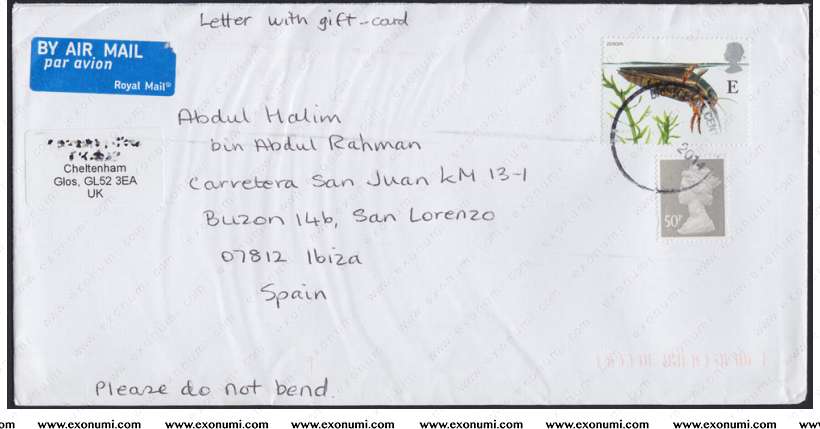 Letter with gift-card
BY AIR MAIL
par avion
Royal Mail®
EUROPA
E
2014
50P
Abdul Halim
bin Abdul Rahman
Carretera San Juan KM 13-1
Buzon 146, San Lorenzo
07812 Ibiza
Spain
Cheltenham
Glos, GL52 3EA
UK
Please do not bend.
www.exonumi.com www.exonumi.com www.exonumi.com www.exonumi.com www.exonumi.com www.exonumi.com